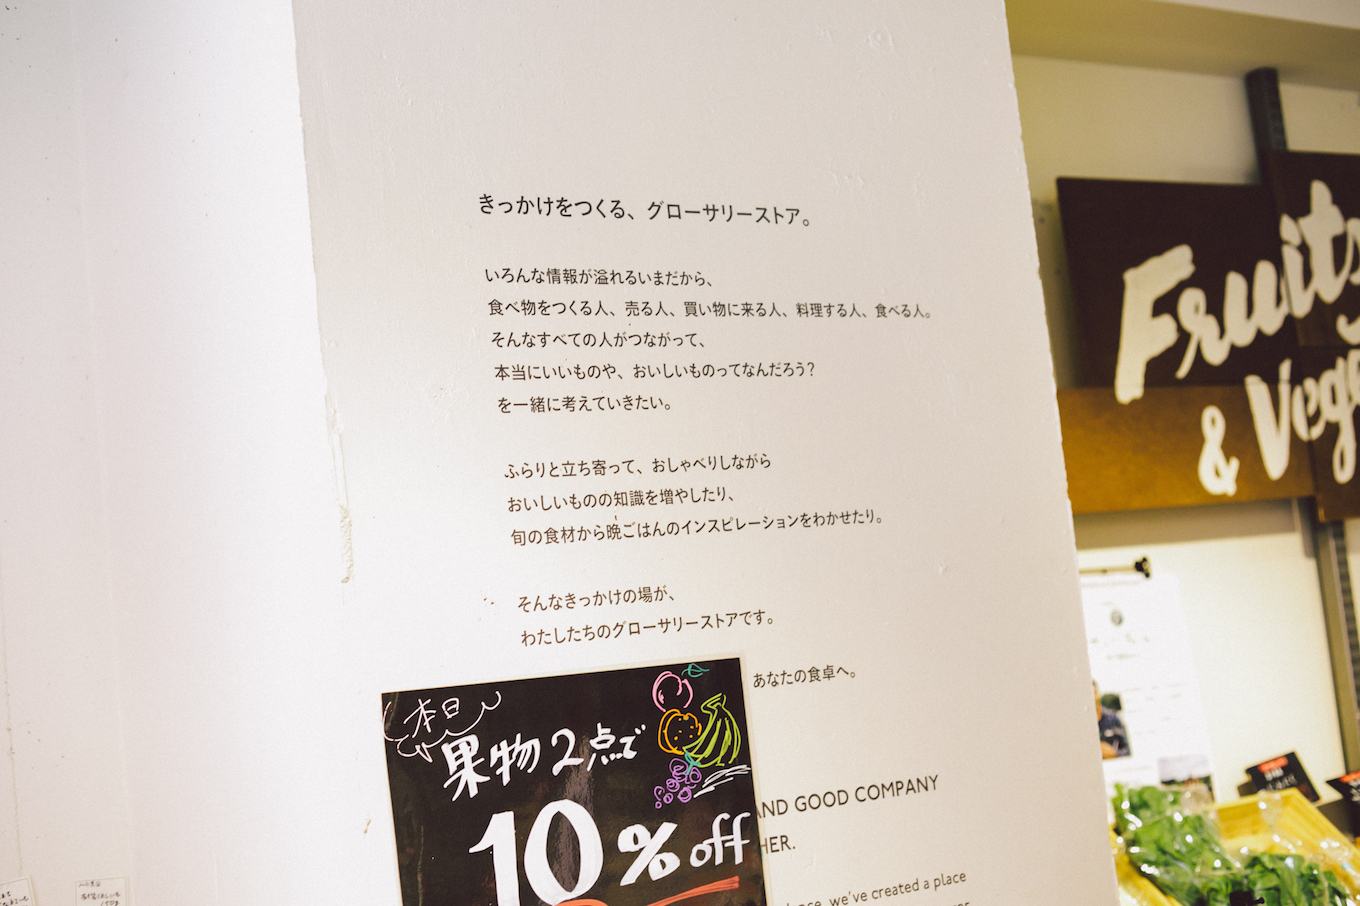 きっかけをつくる、グローサリーストア。
いろんな情報が溢れるいまだから、
食べ物をつくる人、売る人、買い物に来る人、料理する人、食べる人。
そんなすべての人がつながって、
本当にいいものや、おいしいものってなんだろう?
を一緒に考えていきたい。
ふらりと立ち寄って、おしゃべりしながら
おいしいものの知識を増やしたり、
旬の食材から晩ごはんのインスピレーションをわかせたり。
そんなきっかけの場が、
わたしたちのグローサリーストアです。
あなたの食卓へ。
AND GOOD COMPANY
HER.
we've created a place
本日
果物2点で
10% off
Fruits
& Vege